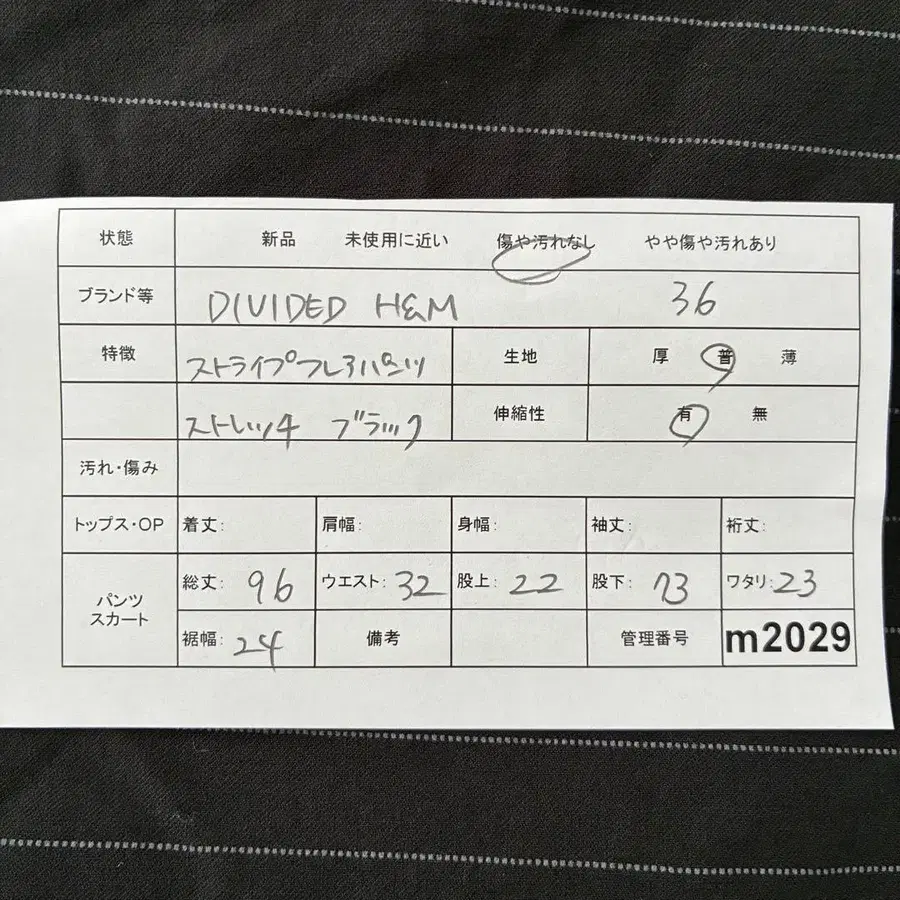 状態 新品 未使用に近い 傷や汚れなし やや傷や汚れあり
ブランド等 DIVIDED H&M 36
特徴 ストライプフレアパンツ 生地 厚 普 薄
ストレッチ ブラック 伸縮性 有 無
汚れ・傷み
トップス・OP 着丈: 肩幅: 身幅: 袖丈: 裄丈:
パンツ スカート 総丈: 96 ウエスト: 32 股上: 22 股下: 73 ワタリ: 23
裾幅: 24 備考 管理番号 m2029